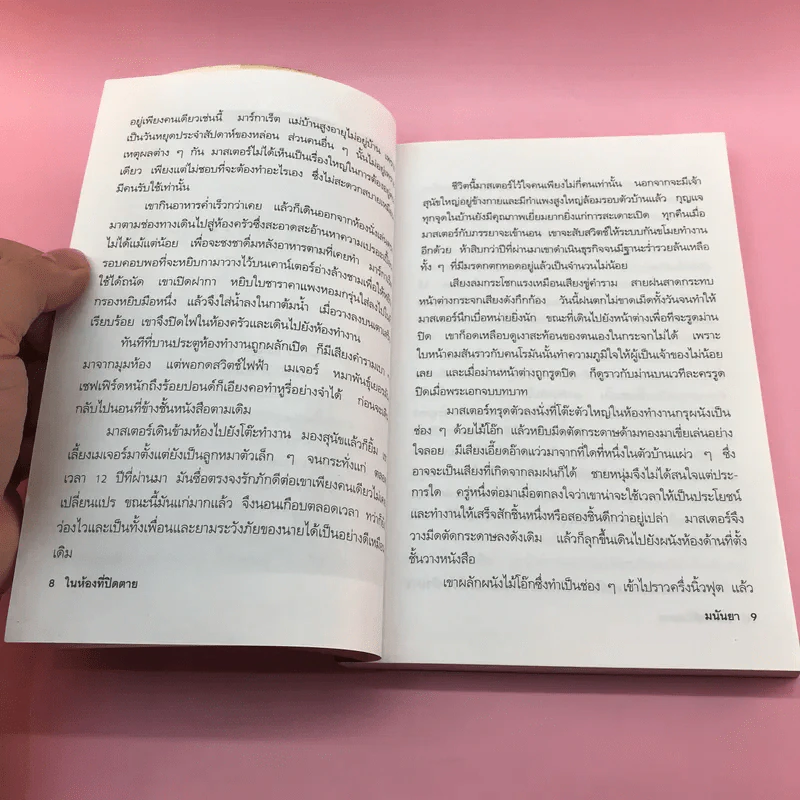 อยู่เพียงคนเดียวเช่นนี้ มาร์กาเร็ต แม่บ้านสูงอายุไม่อยู่บ้าน
เป็นวันหยุดประจำสัปดาห์ของหล่อน ส่วนคนอื่น ๆ นั้นไม่อยู่
เหตุผลต่าง ๆ กัน มาสเตอร์ไม่ได้เห็นเป็นเรื่องใหญ่ในการต้อง
เดียว เพียงแต่ไม่ชอบที่จะต้องทำอะไรเอง ซึ่งไม่สะดวกสบาย
มีคนรับใช้เท่านั้น
เขากินอาหารค่ำเร็วกว่าเคย แล้วก็เดินออกจากห้องนั่งเล่น
มาตามช่องทางเดินไปสู่ห้องครัวซึ่งสะอาดสะอ้านหาความเปรอะเปื้อน
ไม่ได้แม้แต่น้อย เพื่อจะชงชาดื่มหลังอาหารตามที่เคยทำ
รอบคอบพอที่จะหยิบกามาวางไว้บนเคาน์เตอร์อ่างล้างชามเพื่อให้
ใช้ได้ถนัด เขาเปิดฝากา หยิบใบชาราคาแพงหอมกรุ่นใส่ลงไปใน
กรองหยิบมือหนึ่ง แล้วจึงใส่น้ำลงในกาต้มน้ำ เมื่อวางลงบนเตา
เรียบร้อย เขาจึงปิดไฟในห้องครัวและเดินไปยังห้องทำงาน
ทันทีที่บานประตูห้องทำงานถูกผลักเปิด ก็มีเสียงคำรามเบา ๆ
มาจากมุมห้อง แต่พอกดสวิตช์ไฟฟ้า เมเจอร์ หมาพันธุ์เยอรมัน
เชฟเพิร์ดหนักถึงร้อยปอนด์ก็เอียงคอทำหูรี่อย่างจำได้ ก่อนจะเดิน
กลับไปนอนที่ข้างชั้นหนังสือตามเดิม
มาสเตอร์เดินข้ามห้องไปยังโต๊ะทำงาน มองสุนัขแล้วก็ยิ้ม เขา
เลี้ยงเมเจอร์มาตั้งแต่ยังเป็นลูกหมาตัวเล็ก ๆ จนกระทั่งแก่ ตลอด
เวลา 12 ปีที่ผ่านมา มันซื่อตรงจงรักภักดีต่อเขาเพียงคนเดียวไม่เคย
เปลี่ยนแปร ขณะนี้มันแก่มากแล้ว จึงนอนเกือบตลอดเวลา ทว่าก็ยัง
ว่องไวและเป็นทั้งเพื่อนและยามระวังภัยของนายได้เป็นอย่างดีเหมือน
เดิม
8 ในห้องที่ปิดตาย
ชีวิตนี้มาสเตอร์ไว้ใจคนเพียงไม่กี่คนเท่านั้น นอกจากจะมีเจ้า
สุนัขใหญ่อยู่ข้างกายและมีกำแพงสูงใหญ่ล้อมรอบตัวบ้านแล้ว กุญแจ
ทุกจุดในบ้านยังมีคุณภาพเยี่ยมยากยิ่งแก่การสะเดาะเปิด ทุกคืนเมื่อ
มาสเตอร์กับภรรยาจะเข้านอน เขาจะสับสวิตช์ให้ระบบกันขโมยทำงาน
อีกด้วย ห้าสิบกว่าปีที่ผ่านมาเขาดำเนินธุรกิจจนมีฐานะร่ำรวยล้นเหลือ
ทั้ง ๆ ที่มีมรดกตกทอดอยู่แล้วเป็นจำนวนไม่น้อย
เสียงลมกระโชกแรงเหมือนเสียงขู่คำราม สายฝนสาดกระทบ
หน้าต่างกระจกเสียงดังกึกก้อง วันนี้ฝนตกไม่ขาดเม็ดทั้งวันจนทำให้
มาสเตอร์นึกเบื่อหน่ายยิ่งนัก ขณะที่เดินไปยังหน้าต่างเพื่อที่จะรูดม่าน
ปิด เขาก็อดเหลือบดูเงาสะท้อนของตนเองในกระจกไม่ได้ เพราะ
ใบหน้าคมสันราวกับคนโรมันนั้นทำความภูมิใจให้ผู้เป็นเจ้าของไม่น้อย
เลย และเมื่อม่านหน้าต่างถูกรูดปิด ก็ดูราวกับม่านบนเวทีละครรูด
ปิดเมื่อพระเอกจบบทบาท
มาสเตอร์ทรุดตัวลงนั่งที่โต๊ะตัวใหญ่ในห้องทำงานกรุผนังเป็น
ช่อง ๆ ด้วยไม้โอ๊ก แล้วหยิบมีดตัดกระดาษด้ามทองมาเขี่ยเล่นอย่าง
ใจลอย มีเสียงเอี๊ยดอ๊าดแว่วมาจากที่ใดที่หนึ่งในตัวบ้านแผ่ว ๆ ซึ่ง
อาจจะเป็นเสียงที่เกิดจากลมฝนก็ได้ ชายหนุ่มจึงไม่ได้สนใจแต่ประ-
การใด ครู่หนึ่งต่อมาเมื่อตกลงใจว่าเขาน่าจะใช้เวลาให้เป็นประโยชน์
และทำงานให้เสร็จสักชิ้นหนึ่งหรือสองชิ้นดีกว่าอยู่เปล่า มาสเตอร์จึง
วางมีดตัดกระดาษลงดังเดิม แล้วก็ลุกขึ้นเดินไปยังผนังห้องด้านที่ตั้ง
ชั้นวางหนังสือ
เขาผลักผนังไม้โอ๊กซึ่งทำเป็นช่อง ๆ เข้าไปราวครึ่งนิ้วฟุต แล้ว
มนันยา 9